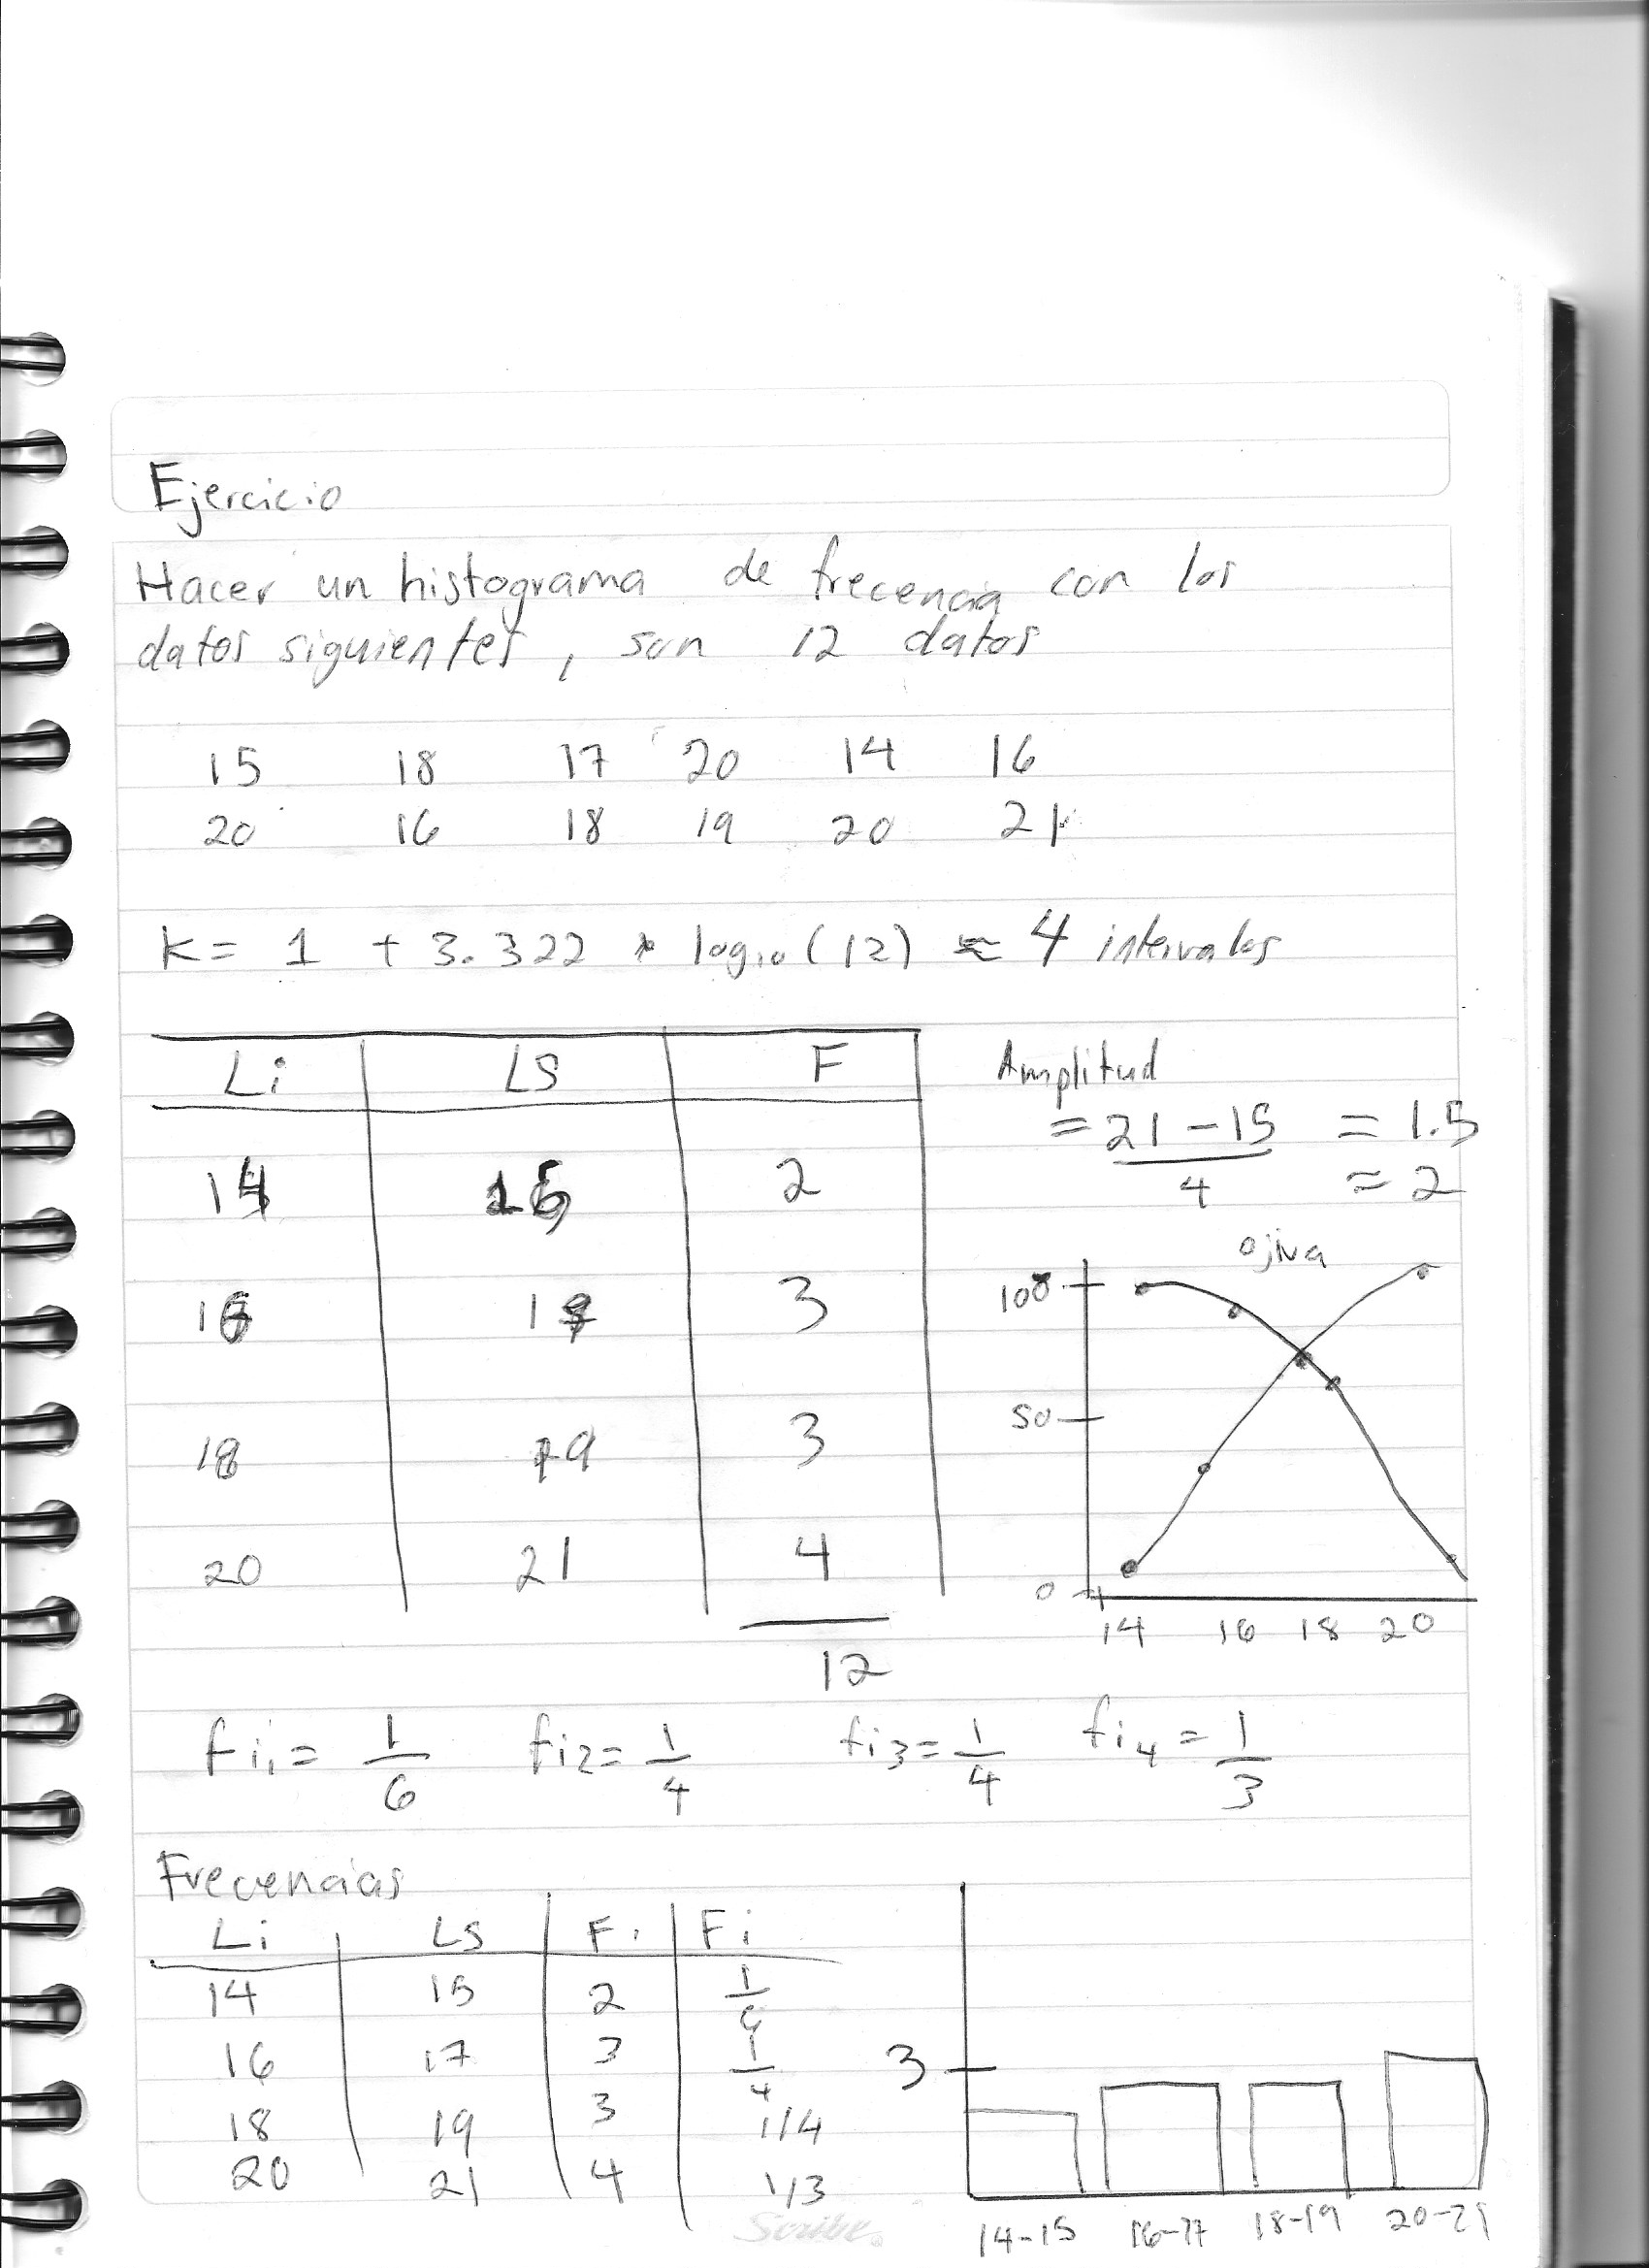 Ejercicio
Hacer un histograma de frecencia con los
datos siguientes, son 12 datos
15 18 17 20 14 16
20 16 18 19 20 21
K = 1 + 3.322 * log10(12) ≈ 4 intervalos
Li LS F
14 15 2
16 17 3
18 19 3
20 21 4
12
Amplitud
= 21 - 15 = 1.5
4 ≈ 2
ojiva
100
50
0
14 16 18 20
fi1 = 1/6 fi2 = 1/4 fi3 = 1/4 fi4 = 1/3
Frecencias
Li LS F. Fi
14 15 2 1/6
16 17 3 1/4
18 19 3 1/4
20 21 4 1/3
3
14-15 16-17 18-19 20-21
Scribe